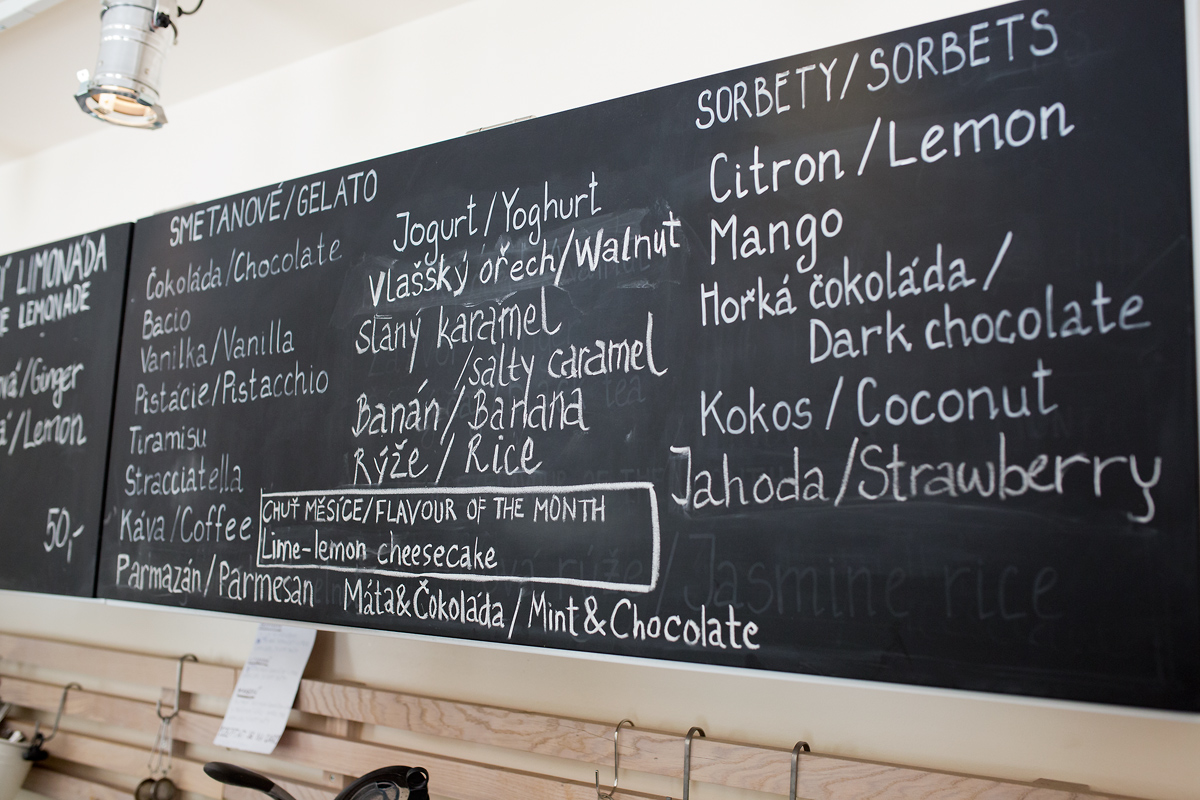 LIMONÁDA
LEMONADE
/Ginger
/Lemon
50,-
SMETANOVÉ/GELATO
Čokoláda/Chocolate
Bacio
Vanilka/Vanilla
Pistácie/Pistacchio
Tiramisu
Stracciatella
Káva/Coffee
Parmazán/Parmesan
Jogurt/Yoghurt
Vlašský ořech/Walnut
Slaný karamel
/salty caramel
Banán/Banana
Rýže/Rice
CHUŤ MĚSÍCE/FLAVOUR OF THE MONTH
Lime-lemon cheesecake
Máta&Čokoláda/Mint&Chocolate
SORBETY/SORBETS
Citron/Lemon
Mango
Hořká čokoláda/
Dark chocolate
Kokos/Coconut
Jahoda/Strawberry
rýže/Jasmine rice